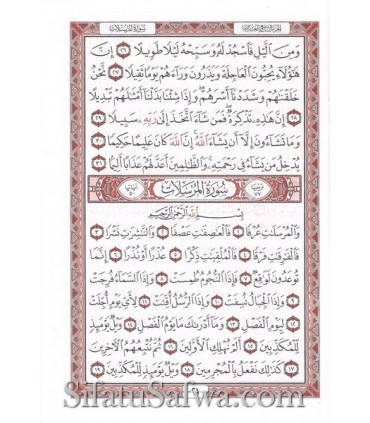 سُورَةُ المُرْسَلَات
وَمِنَ ٱلَّيْلِ فَٱسْجُدْ لَهُۥ وَسَبِّحْهُ لَيْلًا طَوِيلًا ٢٦ إِنَّ
هَٰٓؤُلَآءِ يُحِبُّونَ ٱلْعَاجِلَةَ وَيَذَرُونَ وَرَآءَهُمْ يَوْمًا ثَقِيلًا ٢٧ نَّحْنُ
خَلَقْنَٰهُمْ وَشَدَدْنَآ أَسْرَهُمْ وَإِذَا شِئْنَا بَدَّلْنَآ أَمْثَٰلَهُمْ تَبْدِيلًا
٢٨ إِنَّ هَٰذِهِۦ تَذْكِرَةٌ فَمَن شَآءَ ٱتَّخَذَ إِلَىٰ رَبِّهِۦ سَبِيلًا ٢٩
وَمَا تَشَآءُونَ إِلَّآ أَن يَشَآءَ ٱللَّهُ إِنَّ ٱللَّهَ كَانَ عَلِيمًا حَكِيمًا ٣٠
يُدْخِلُ مَن يَشَآءُ فِى رَحْمَتِهِۦ وَٱلظَّٰلِمِينَ أَعَدَّ لَهُمْ عَذَابًا أَلِيمًا ٣١
سُورَةُ المُرْسَلَاتِ
بِسْمِ ٱللَّهِ ٱلرَّحْمَٰنِ ٱلرَّحِيمِ
وَٱلْمُرْسَلَٰتِ عُرْفًا ١ فَٱلْعَٰصِفَٰتِ عَصْفًا ٢ وَٱلنَّٰشِرَٰتِ نَشْرًا ٣
فَٱلْفَٰرِقَٰتِ فَرْقًا ٤ فَٱلْمُلْقِيَٰتِ ذِكْرًا ٥ عُذْرًا أَوْ نُذْرًا ٦ إِنَّمَا
تُوعَدُونَ لَوَٰقِعٌ ٧ فَإِذَا ٱلنُّجُومُ طُمِسَتْ ٨ وَإِذَا ٱلسَّمَآءُ فُرِجَتْ
٩ وَإِذَا ٱلْجِبَالُ نُسِفَتْ ١٠ وَإِذَا ٱلرُّسُلُ أُقِّتَتْ ١١ لِأَىِّ يَوْمٍ أُجِّلَتْ
١٢ لِيَوْمِ ٱلْفَصْلِ ١٣ وَمَآ أَدْرَىٰكَ مَا يَوْمُ ٱلْفَصْلِ ١٤ وَيْلٌ يَوْمَئِذٍ
لِّلْمُكَذِّبِينَ ١٥ أَلَمْ نُهْلِكِ ٱلْأَوَّلِينَ ١٦ ثُمَّ نُتْبِعُهُمُ ٱلْءَاخِرِينَ
١٧ كَذَٰلِكَ نَفْعَلُ بِٱلْمُجْرِمِينَ ١٨ وَيْلٌ يَوْمَئِذٍ لِّلْمُكَذِّبِينَ ١٩
www.SifatuSafwa.com